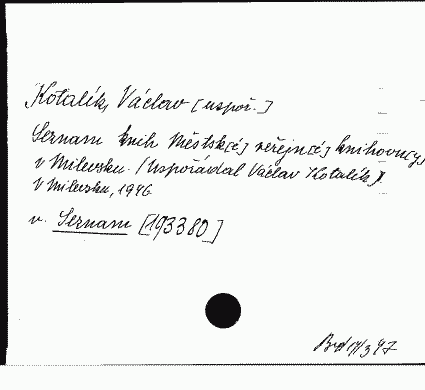 Kotalík, Václav [uspoř.]
Seznam knih Městsk[é] veřejn[é] knihovn[y]
v Milevsku. (Uspořádal Václav Kotalík).
V Milevsku, 1946
v. Seznam [193380]
Brd 17/3 47